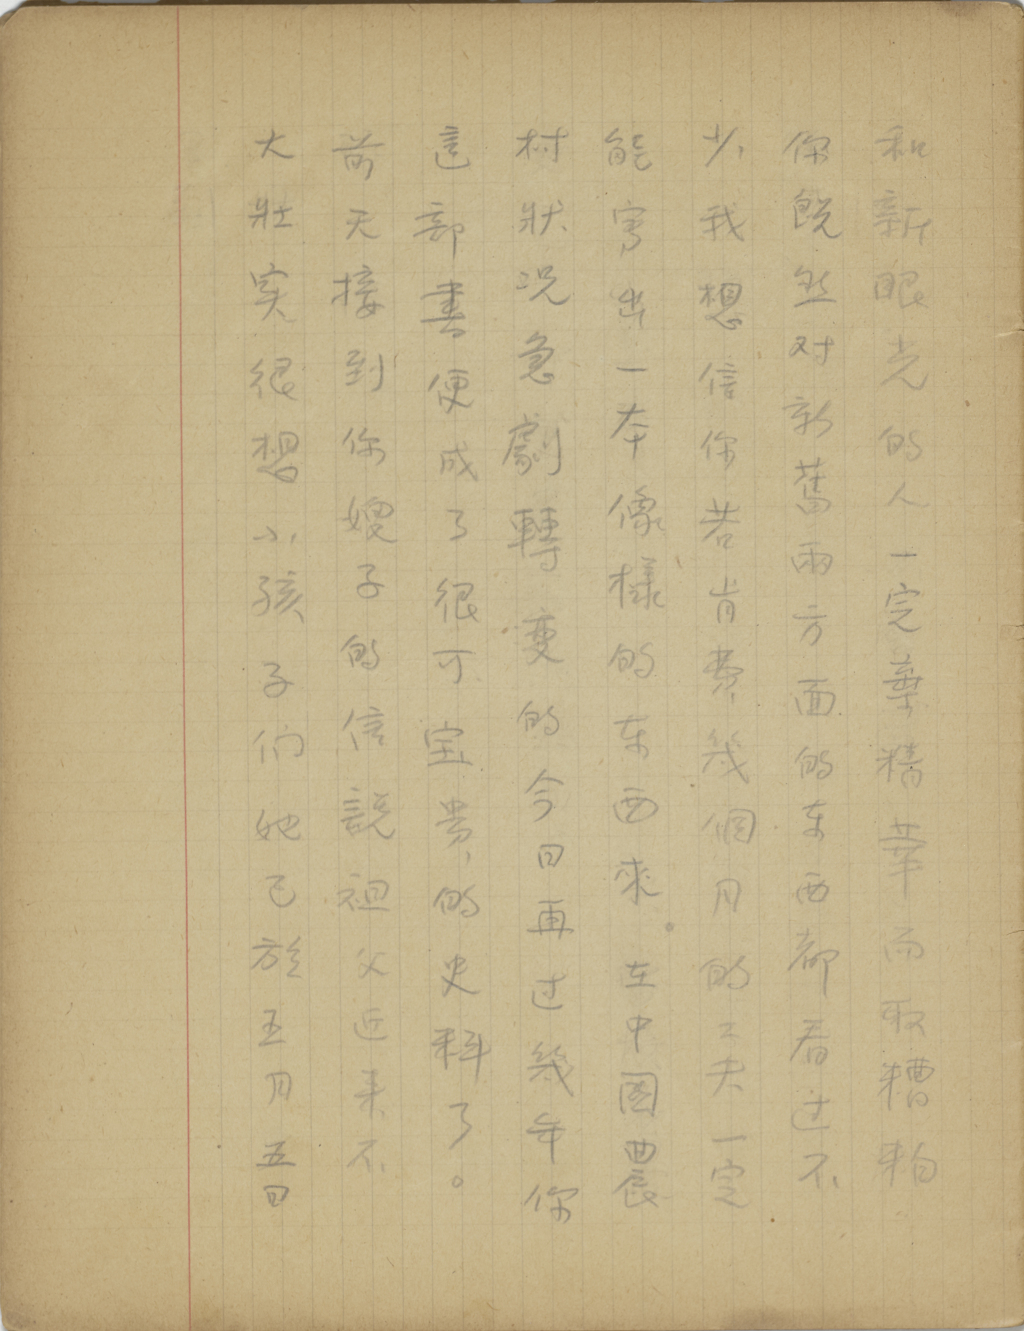 和新眼光的人一定棄精華而取糟粕
你既然对新舊兩方面的东西都看过不
少我想信你若肯费幾個月的工夫一定
能寫出一本像樣的东西來。在中國農
村狀况急劇轉变的今日再过幾年你
這部書便成了很可宝贵的史料了。
前天接到你嫂子的信說祖父近来不
大壯实很想小孩子们她已於五月五日